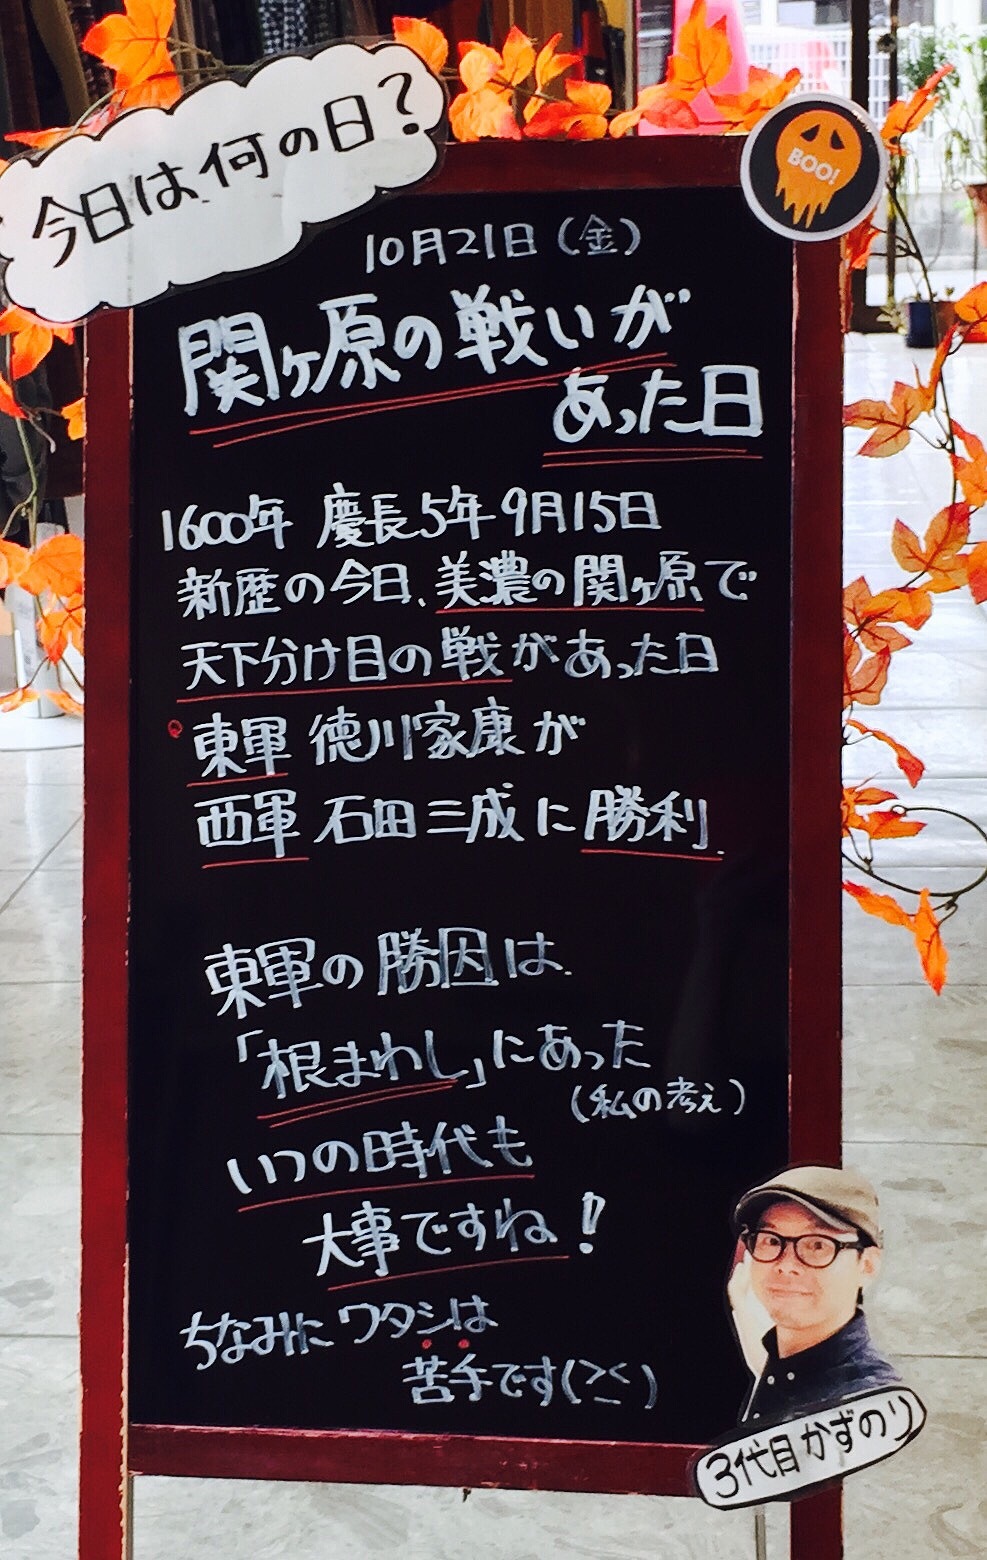 今日は何の日?
BOO!
10月21日(金)
関ヶ原の戦いが
あった日
1600年 慶長5年9月15日
新歴の今日、美濃の関ヶ原で
天下分け目の戦があった日
東軍 徳川家康が
西軍 石田三成に勝利.
東軍の勝因は.
「根まわし」にあった
(私の考え)
いつの時代も
大事ですね!
ちなみにワタシは
苦手です(><)
3代目かずのり